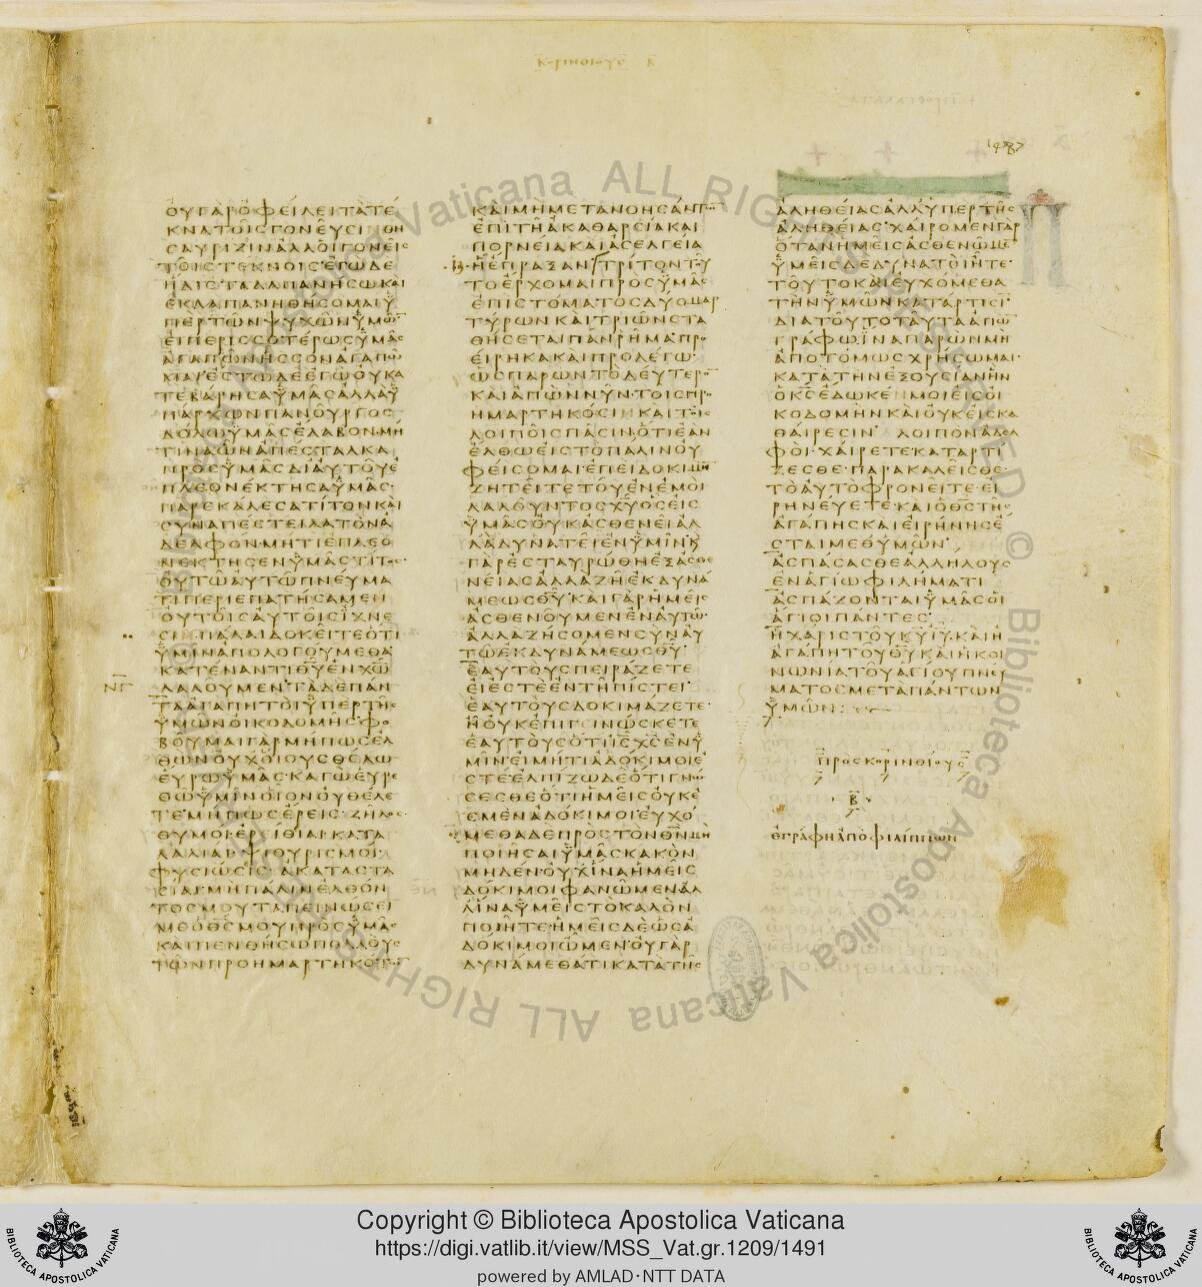 ΚΟΡΙΝΘΙΟΥΣ Β
ΟΥΓΑΡΟΦΕΙΛΕΙΤΑΤΕ
ΚΝΑΤΟΙΣΓΟΝΕΥΣΙΝΘΗ
ΣΑΥΡΙΖΙΝΑΛΛΟΙΓΟΝΕΙΣ
ΤΟΙΣΤΕΚΝΟΙΣ·ΕΓΩΔΕ
ΗΔΙΣΤΑΔΑΠΑΝΗΣΩΚΑΙ
ΕΚΔΑΠΑΝΗΘΗΣΟΜΑΙΥ
ΠΕΡΤΩΝΨΥΧΩΝΥΜΩ̅
ΕΙΠΕΡΙΣΣΟΤΕΡΩΣΥΜΑΣ
ΑΓΑΠΩΝΗΣΣΟΝΑΓΑΠΩ
ΜΑΙ·ΕΣΤΩΔΕΕΓΩΟΥΚΑ
ΤΕΒΑΡΗΣΑΥΜΑΣΑΛΛΑΥ
ΠΑΡΧΩΝΠΑΝΟΥΡΓΟΣ
ΔΟΛΩΥΜΑΣΕΛΑΒΟΝ·ΜΗ
ΤΙΝΑΩΝΑΠΕΣΤΑΛΚΑ
ΠΡΟΣΥΜΑΣΔΙΑΥΤΟΥΕ
ΠΛΕΟΝΕΚΤΗΣΑΥΜΑΣ·
ΠΑΡΕΚΑΛΕΣΑΤΙΤΟΝΚΑΙ
ΣΥΝΑΠΕΣΤΕΙΛΑΤΟΝΑ
ΔΕΛΦΟΝ·ΜΗΤΙΕΠΛΕΟ
ΝΕΚΤΗΣΕΝΥΜΑΣΤΙΤΟΣ·
ΟΥΤΩΑΥΤΩΠΝΕΥΜΑ
ΤΙΠΕΡΙΕΠΑΤΗΣΑΜΕΝ
ΟΥΤΟΙΣΑΥΤΟΙΣΙΧΝΕ
ΣΙΝΠΑΛΑΙΔΟΚΕΙΤΕΟΤΙ
ΥΜΙΝΑΠΟΛΟΓΟΥΜΕΘΑ
ΚΑΤΕΝΑΝΤΙΘ̅Υ̅ΕΝΧ̅Ω̅
ΛΑΛΟΥΜΕΝ·ΤΑΔΕΠΑΝ
ΤΑΑΓΑΠΗΤΟΙΥΠΕΡΤΗΣ
ΥΜΩΝΟΙΚΟΔΟΜΗΣ·ΦΟ
ΒΟΥΜΑΙΓΑΡΜΗΠΩΣΕΛ
ΘΩΝΟΥΧΟΙΟΥΣΘΕΛΩ
ΕΥΡΩΥΜΑΣΚΑΓΩΕΥΡΕ
ΘΩΥΜΙΝΟΙΟΝΟΥΘΕΛΕ
ΤΕ·ΜΗΠΩΣΕΡΕΙΣ·ΖΗΛΟΣ
ΘΥΜΟΙ·ΕΡΙΘΙΑΙ·ΚΑΤΑ
ΛΑΛΙΑΙ·ΨΙΘΥΡΙΣΜΟΙ·
ΦΥΣΙΩΣΙΣ·ΑΚΑΤΑΣΤΑ
ΣΙΑΙ·ΜΗΠΑΛΙΝΕΛΘΟΝ
ΤΟΣΜΟΥΤΑΠΕΙΝΩΣΕΙ
ΜΕΟΘ̅Σ̅ΜΟΥΠΡΟΣΥΜΑΣ
ΚΑΙΠΕΝΘΗΣΩΠΟΛΛΟΥΣ
ΤΩΝΠΡΟΗΜΑΡΤΗΚΟΤΩ̅
ΚΑΙΜΗΜΕΤΑΝΟΗΣΑΝΤΩ̅
ΕΠΙΤΗΑΚΑΘΑΡΣΙΑΚΑΙ
ΠΟΡΝΕΙΑΚΑΙΑΣΕΛΓΕΙΑ
ΗΕΠΡΑΞΑΝ ΤΡΙΤΟΝΤΟΥ
ΤΟΕΡΧΟΜΑΙΠΡΟΣΥΜΑΣ
ΕΠΙΣΤΟΜΑΤΟΣΔΥΟΜΑΡ
ΤΥΡΩΝΚΑΙΤΡΙΩΝΣΤΑ
ΘΗΣΕΤΑΙΠΑΝΡΗΜΑ·ΠΡΟ
ΕΙΡΗΚΑΚΑΙΠΡΟΛΕΓΩ·
ΩΣΠΑΡΩΝΤΟΔΕΥΤΕΡΟ̅
ΚΑΙΑΠΩΝΝΥΝ·ΤΟΙΣΠΡΟ
ΗΜΑΡΤΗΚΟΣΙΝΚΑΙΤΟΙΣ
ΛΟΙΠΟΙΣΠΑΣΙΝ·ΟΤΙΕΑΝ
ΕΛΘΩΕΙΣΤΟΠΑΛΙΝΟΥ
ΦΕΙΣΟΜΑΙ·ΕΠΕΙΔΟΚΙΜΗ
ΖΗΤΕΙΤΕΤΟΥΕΝΕΜΟΙ
ΛΑΛΟΥΝΤΟΣΧ̅Υ̅ΟΣΕΙΣ
ΥΜΑΣΟΥΚΑΣΘΕΝΕΙΑΛ
ΛΑΔΥΝΑΤΕΙΕΝΥΜΙΝ·Κ
ΓΑΡΕΣΤΑΥΡΩΘΗΕΞΑΣΘΕ
ΝΕΙΑΣΑΛΛΑΖΗΕΚΔΥΝΑ
ΜΕΩΣΘ̅Υ̅·ΚΑΙΓΑΡΗΜΕΙΣ
ΑΣΘΕΝΟΥΜΕΝΕΝΑΥΤΩ·
ΑΛΛΑΖΗΣΟΜΕΝΣΥΝΑΥ
ΤΩΕΚΔΥΝΑΜΕΩΣΘ̅Υ̅·
ΕΑΥΤΟΥΣΠΕΙΡΑΖΕΤΕ
ΕΙΕΣΤΕΕΝΤΗΠΙΣΤΕΙ·
ΕΑΥΤΟΥΣΔΟΚΙΜΑΖΕΤΕ·
ΗΟΥΚΕΠΙΓΕΙΝΩΣΚΕΤΕ
ΕΑΥΤΟΥΣΟΤΙΙ̅Σ̅Χ̅Σ̅ΕΝΥ
ΜΙΝ·ΕΙΜΗΤΙΑΔΟΚΙΜΟΙΕ
ΣΤΕ·ΕΛΠΙΖΩΔΕΟΤΙΓΝΩ
ΣΕΣΘΕΟΤΙΗΜΕΙΣΟΥΚΕ
ΣΜΕΝΑΔΟΚΙΜΟΙ·ΕΥΧΟ
ΜΕΘΑΔΕΠΡΟΣΤΟΝΘ̅Ν̅ΜΗ
ΠΟΙΗΣΑΙΥΜΑΣΚΑΚΟΝ
ΜΗΔΕΝ·ΟΥΧΙΝΑΗΜΕΙΣ
ΔΟΚΙΜΟΙΦΑΝΩΜΕΝΑΛ
ΛΙΝΑΥΜΕΙΣΤΟΚΑΛΟΝ
ΠΟΙΗΤΕ·ΗΜΕΙΣΔΕΩΣΑ
ΔΟΚΙΜΟΙΩΜΕΝ·ΟΥΓΑΡ
ΔΥΝΑΜΕΘΑΤΙΚΑΤΑΤΗΣ
ΑΛΗΘΕΙΑΣΑΛΛΑΥΠΕΡΤΗΣ
ΑΛΗΘΕΙΑΣ·ΧΑΙΡΟΜΕΝΓΑΡ
ΟΤΑΝΗΜΕΙΣΑΣΘΕΝΩΜΕ̅
ΥΜΕΙΣΔΕΔΥΝΑΤΟΙΗΤΕ·
ΤΟΥΤΟΚΑΙΕΥΧΟΜΕΘΑ
ΤΗΝΥΜΩΝΚΑΤΑΡΤΙΣΙ̅·
ΔΙΑΤΟΥΤΟΤΑΥΤΑΑΠΩ̅
ΓΡΑΦΩ·ΙΝΑΠΑΡΩΝΜΗ
ΑΠΟΤΟΜΩΣΧΡΗΣΩΜΑΙ·
ΚΑΤΑΤΗΝΕΞΟΥΣΙΑΝΗΝ
ΟΚ̅Σ̅ΕΔΩΚΕΝΜΟΙΕΙΣΟΙ
ΚΟΔΟΜΗΝΚΑΙΟΥΚΕΙΣΚΑ
ΘΑΙΡΕΣΙΝ· ΛΟΙΠΟΝΑΔΕΛ
ΦΟΙ·ΧΑΙΡΕΤΕ·ΚΑΤΑΡΤΙ
ΖΕΣΘΕ·ΠΑΡΑΚΑΛΕΙΣΘΕ·
ΤΟΑΥΤΟΦΡΟΝΕΙΤΕ·ΕΙ
ΡΗΝΕΥΕΤΕ·ΚΑΙΟΘ̅Σ̅ΤΗΣ
ΑΓΑΠΗΣΚΑΙΕΙΡΗΝΗΣΕ
ΣΤΑΙΜΕΘΥΜΩΝ·
ΑΣΠΑΣΑΣΘΕΑΛΛΗΛΟΥΣ
ΕΝΑΓΙΩΦΙΛΗΜΑΤΙ
ΑΣΠΑΖΟΝΤΑΙΥΜΑΣΟΙ
ΑΓΙΟΙΠΑΝΤΕΣ·
ΗΧΑΡΙΣΤΟΥΚ̅Υ̅Ι̅Υ̅·ΚΑΙΗ
ΑΓΑΠΗΤΟΥΘ̅Υ̅ΚΑΙΗΚΟΙ
ΝΩΝΙΑΤΟΥΑΓΙΟΥΠΝΕΥ
ΜΑΤΟΣΜΕΤΑΠΑΝΤΩΝ
ΥΜΩΝ:
ΠΡΟΣΚΟΡΙΝΘΙΟΥΣ
·Β·
ΕΓΡΑΦΗΑΠΟΦΙΛΙΠΠΩΝ
Vaticana ALL RIGHTS RESERVED © Biblioteca Apostolica Vaticana ALL RIGHTS
Copyright © Biblioteca Apostolica Vaticana
https://digi.vatlib.it/view/MSS_Vat.gr.1209/1491
powered by AMLAD·NTT DATA
BIBLIOTECA APOSTOLICA VATICANA
BIBLIOTECA APOSTOLICA VATICANA